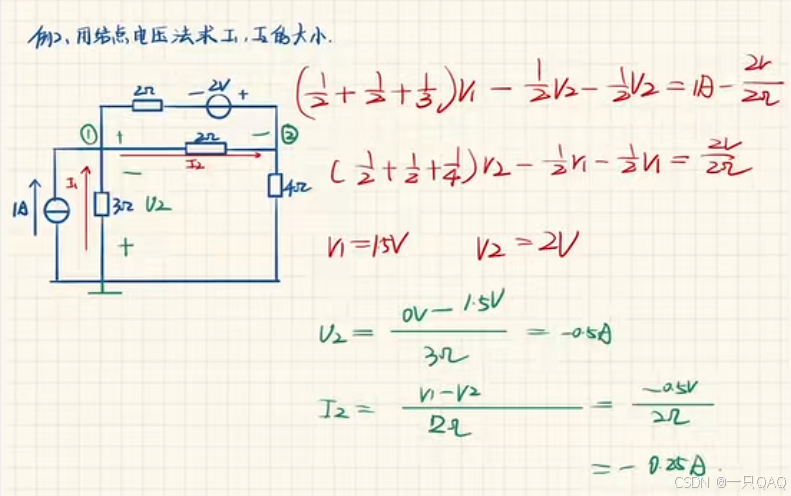 例2、用结点电压法求I₁,I₂的大小.
2Ω - 2V +
① + 2Ω - ②
I₂
1A I₁ - 3Ω U2 + 4Ω
(1/2 + 1/2 + 1/3)V1 - 1/2 V2 - 1/2 V2 = 1A - 2V/2Ω
(1/2 + 1/2 + 1/4)V2 - 1/2 V1 - 1/2 V1 = 2V/2Ω
V1 = 1.5V V2 = 2V
U2 = (0V - 1.5V)/3Ω = -0.5A
I2 = (V1 - V2)/2Ω = -0.5V/2Ω
= -0.25A.
CSDN @一只QAQ